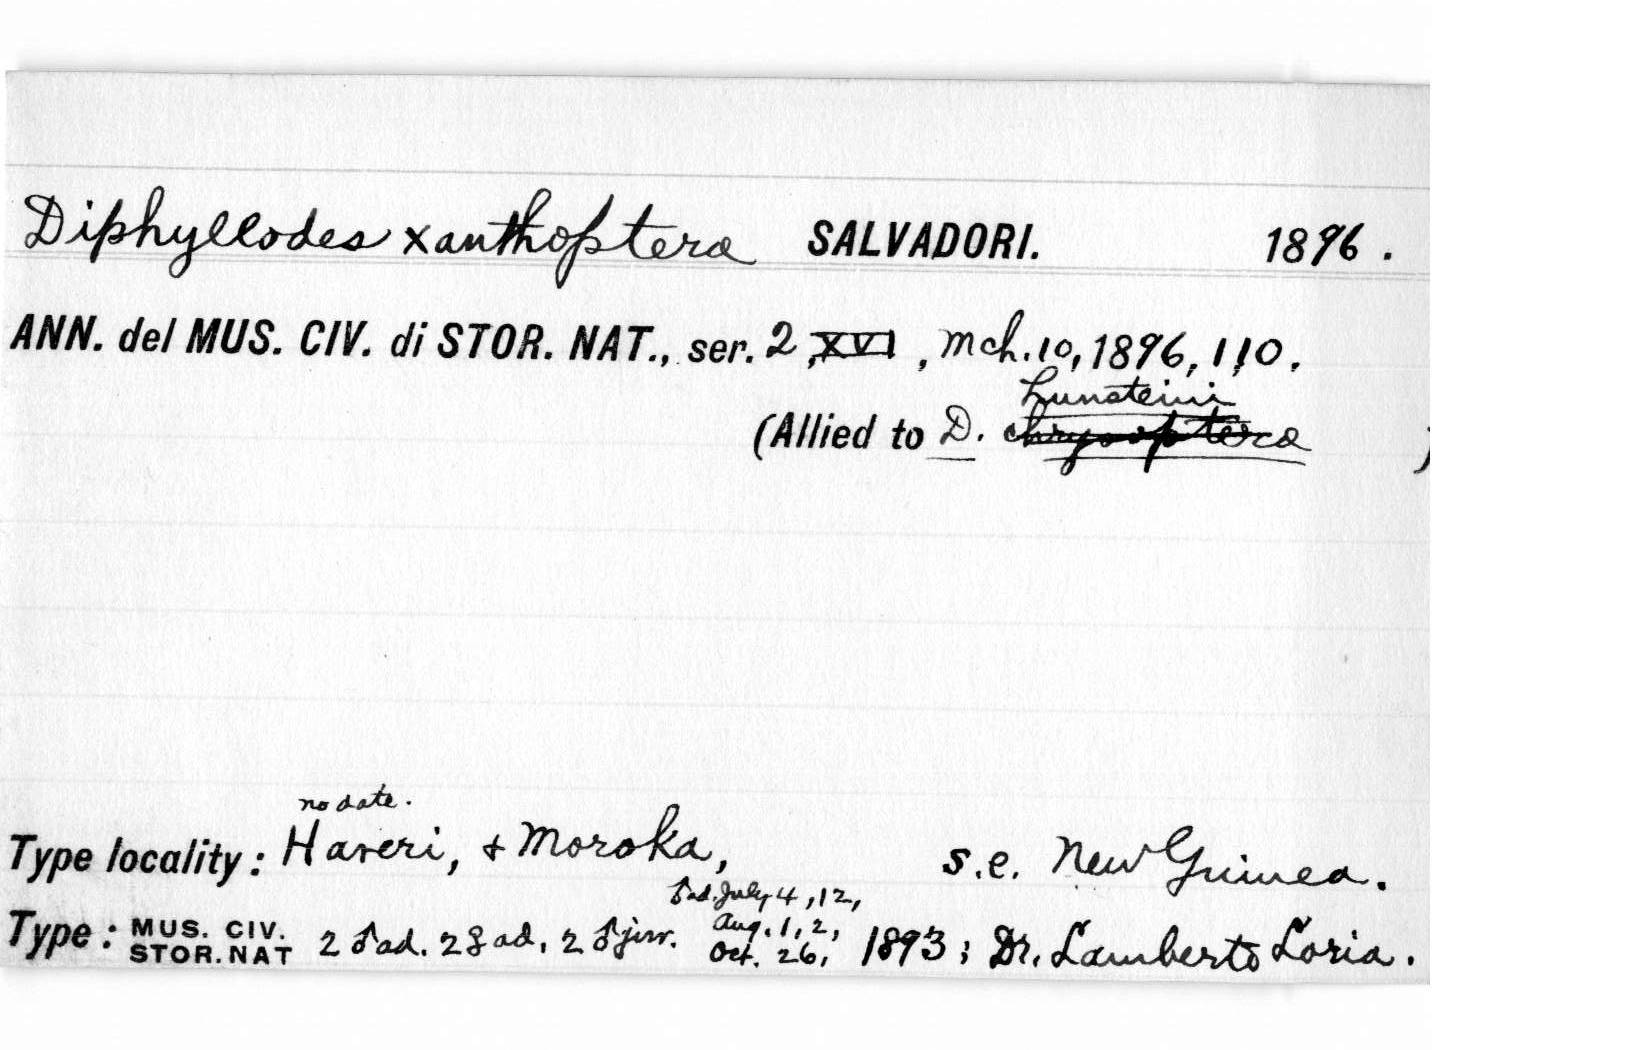 Diphyllodes xanthoptera SALVADORI. 1896.
ANN. del MUS. CIV. di STOR. NAT., ser. 2, XVI, Mch. 10, 1896, 110.
hunsteini
(Allied to D. chrysoptera )
no date.
Type locality: Haveri, & Moroka, S.E. New Guinea.
♂ad. July 4, 12,
Type: MUS. CIV. STOR. NAT 2 ♂ad. 2 ♀ad, 2 ♂juv. Aug. 1, 2, Oct. 26, 1893; Dr. Lamberto Loria.